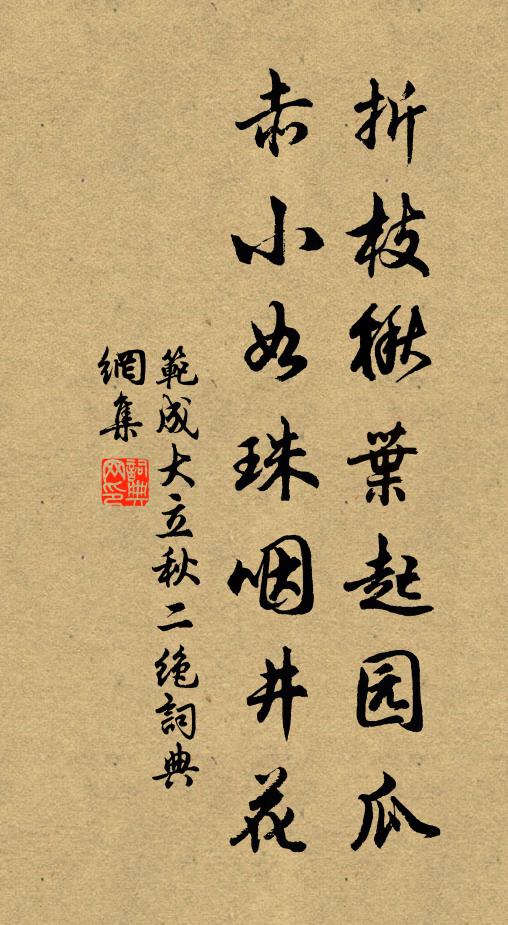 折枝楸葉起园瓜
赤小如珠咽井花
範成大立秋二絶詞典
網集
詞典网印